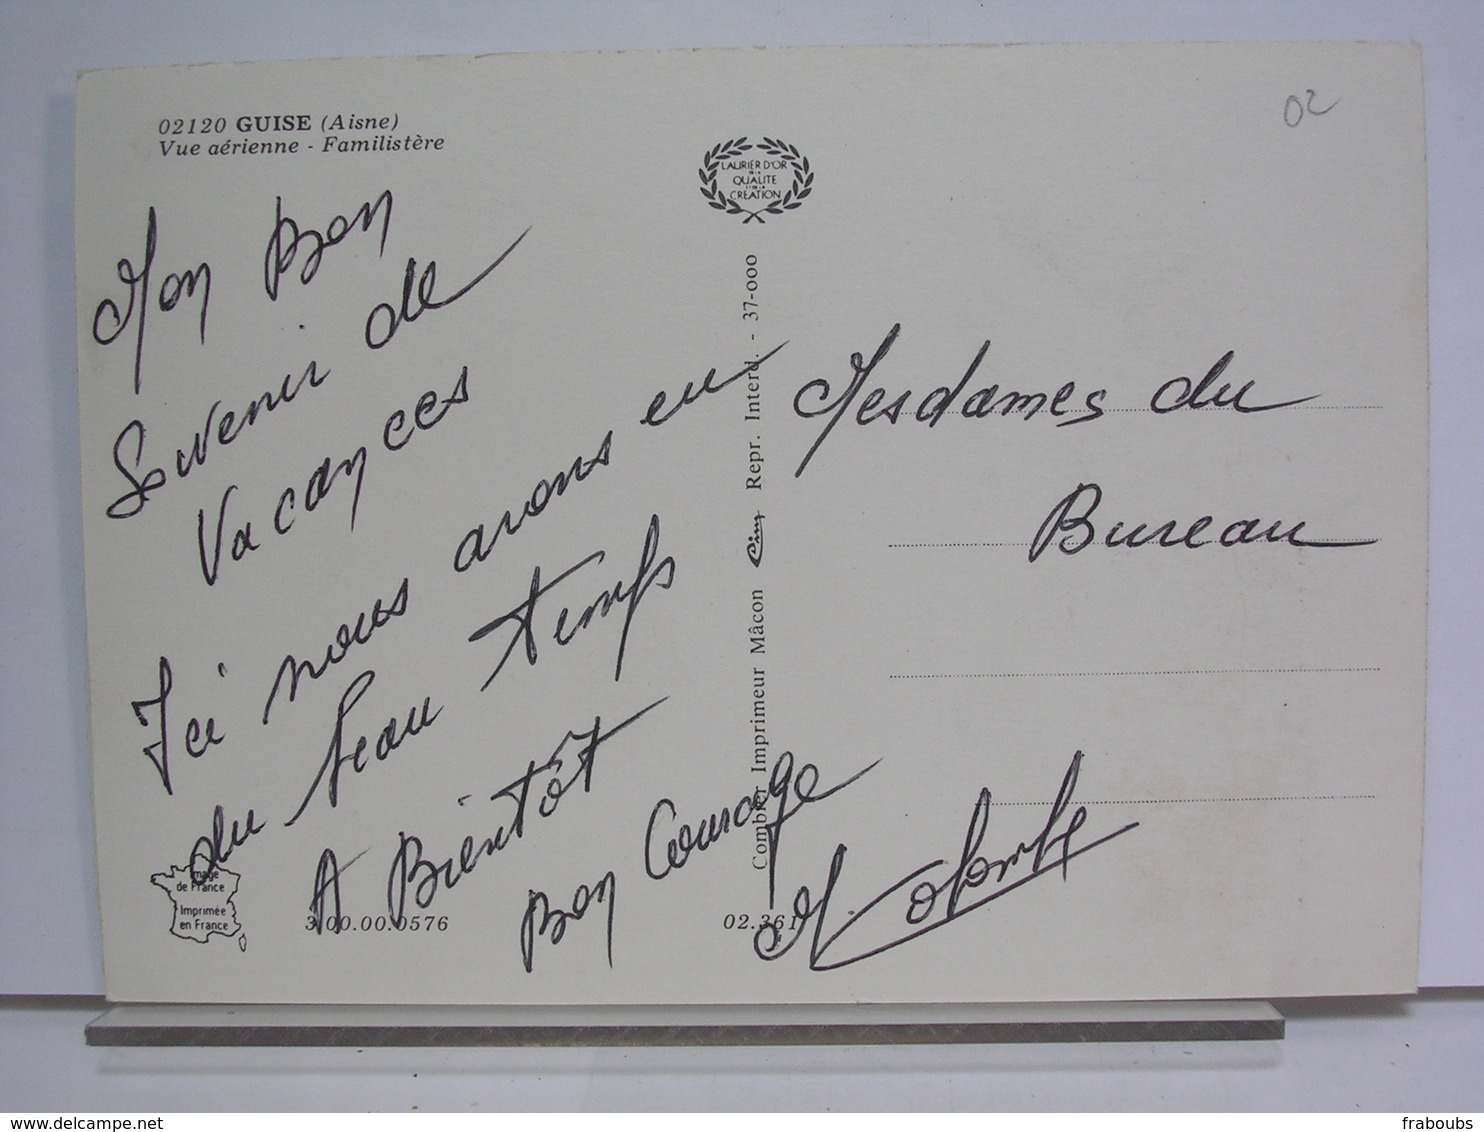 02120 GUISE (Aisne)
Vue aérienne - Familistère
02
LAURIER D'OR
DE LA
QUALITE
ET DE LA
CREATION
Mon Bon
Souvenir de
Vacances
Ici nous avons eu
du beau temps
A Bientôt
Bon Courage
Combier Imprimeur Mâcon Cim Repr. Interd. - 37-000
Mesdames du
Bureau
Image
de France
Imprimée
en France
3.00.00.0576
02.361
fraboubs